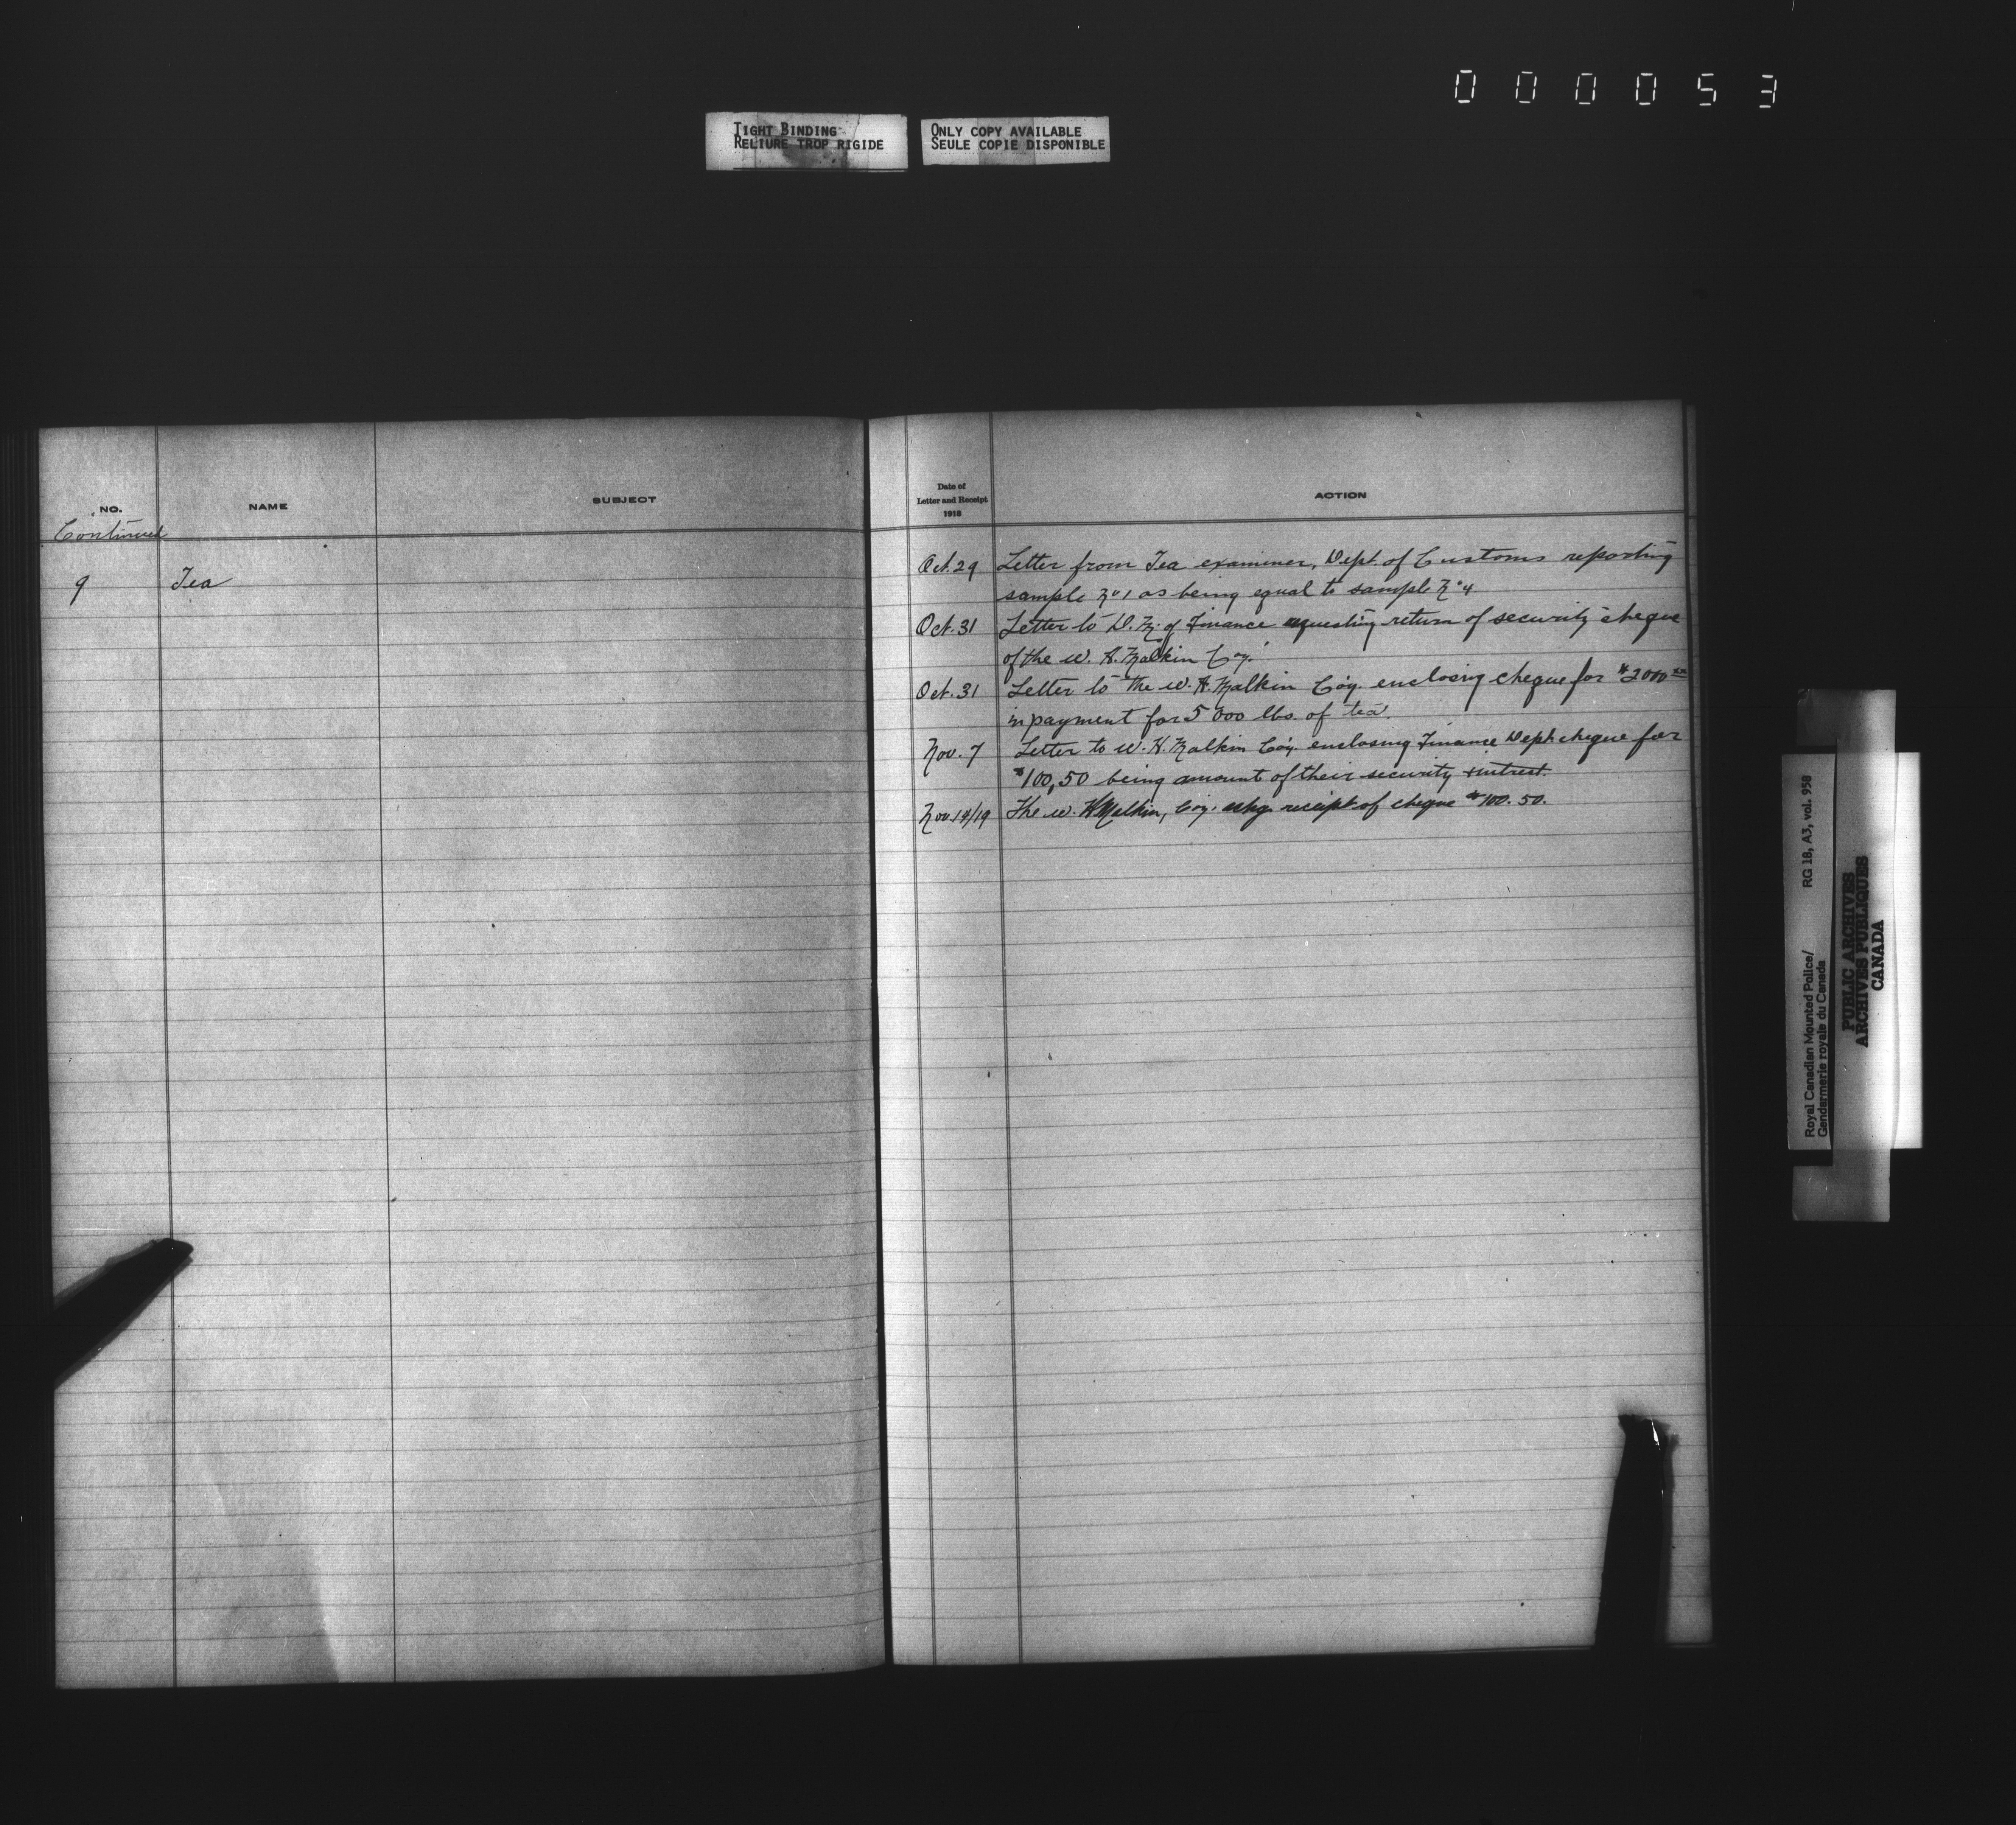 0 0 0 0 5 3
TIGHT BINDING
RELIURE TROP RIGIDE
ONLY COPY AVAILABLE
SEULE COPIE DISPONIBLE
NO.
NAME
SUBJECT
Continued
9 Tea
Date of
Letter and Receipt
1918
ACTION
Oct. 29 Letter from Tea examiner, Dept. of Customs reporting
sample No 1 as being equal to sample No 4
Oct. 31 Letter to D. M. of Finance requesting return of security cheque
of the W. H. Malkin Coy.
Oct. 31 Letter to the W. H. Malkin Coy. enclosing cheque for $2000 00
in payment for 5000 lbs. of tea.
Nov. 7 Letter to W. H. Malkin Coy. enclosing Finance Dept. cheque for
$100,50 being amount of their security + intrest.
Nov. 14/19 The W. H Malkin, Coy. ackg. receipt of cheque $100.50.
Royal Canadian Mounted Police/ RG 18, A3, vol. 958
Gendarmerie royale du Canada
PUBLIC ARCHIVES
ARCHIVES PUBLIQUES
CANADA